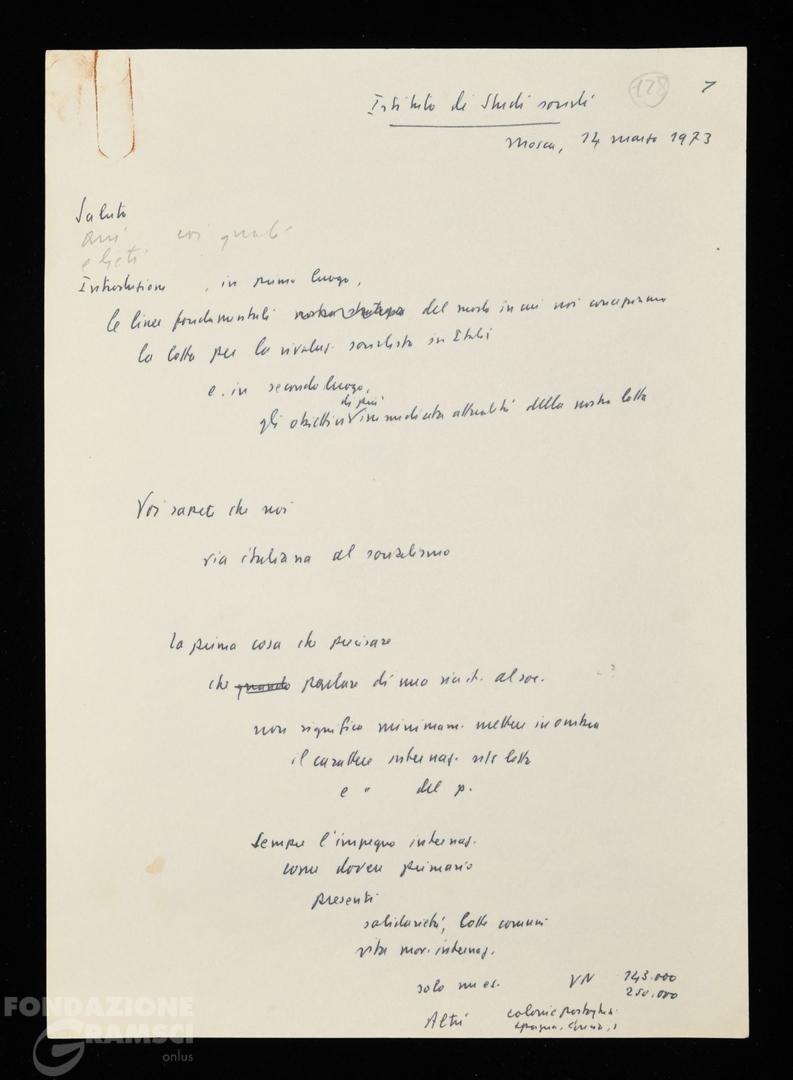 Istituto di Studi sociali
128
Mosca, 14 marzo 1973
Saluto
coi quali
Introduzione , in primo luogo,
le linee fondamentali del modo in cui noi concepiamo
la lotta per la rivoluz. socialista in Italia
e, in secondo luogo,
di più
gli obiettivi immediata attualità della nostra lotta
Voi sapete che noi
via italiana al socialismo
La prima cosa che precisare
che quando parlare di una via it. al soc.
non significa minimam. mettere in ombra
il carattere internaz. lotta
e " del p.
Sempre l'impegno internaz.
come dovere primario
presenti
solidarietà, lotte comuni
vita mov. internaz.
solo un es. VN 143.000
250.000
Altri colonie portoghesi
Spagna, Grecia,
FONDAZIONE
GRAMSCI
onlus